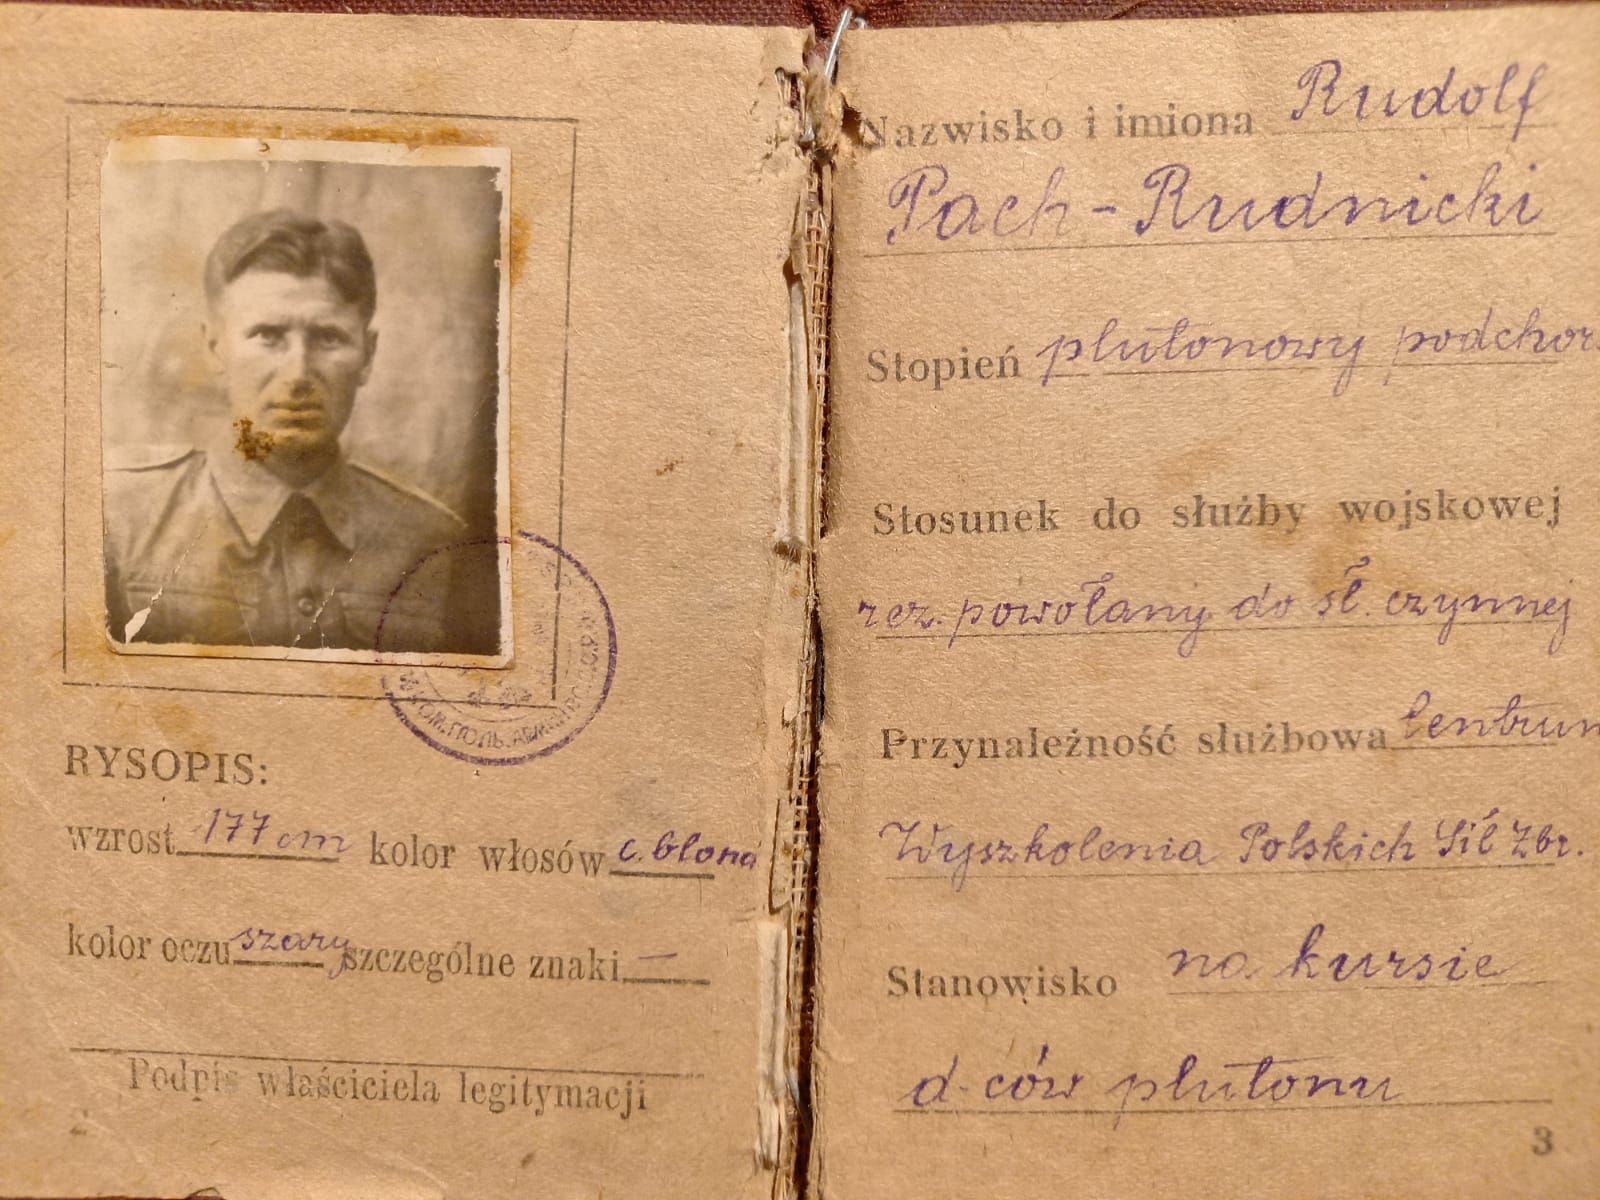 RYSOPIS:
wzrost 177 cm kolor włosów c. blond
kolor oczu szary szczególne znaki —
Podpis właściciela legitymacji
Nazwisko i imiona Rudolf
Pach-Rudnicki
Stopień plutonowy podchor.
Stosunek do służby wojskowej
rez. powołany do sł. czynnej
Przynależność służbowa Centrum
Wyszkolenia Polskich Sił Zbr.
Stanowisko na kursie
d-ców plutonu
3